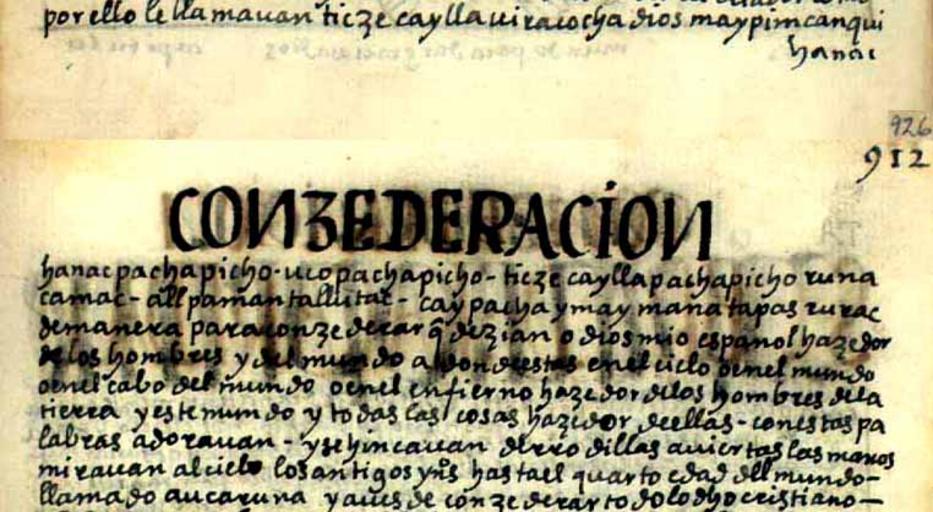 por ello le llamauan ticze caylla uiracocha dios maypim canqui
hanac
926
912
CONZEDERACION
hanac pacha picho - uco pacha picho - ticze caylla pacha picho runa
camac - allpaman tallutac - cay pacha ymaymana tapas rurac
demanera para conzederar q̃ dezian o dios mio español hazedor
de los hombres y del mundo adonde estas en el cielo o en el mundo
o en el cabo del mundo o en el enfierno hazedor de los hombres de la
tierra y este mundo y todas las cosas hazedor de ellas - con estas pa
labras adorauan - y se hincauan de rrodillas auiertas las manos
mirauan al cielo los antigos yn̅s hasta el quarto edad del mundo -
llamado aucaruna y aues de conzederar todo lo dho cristiano -